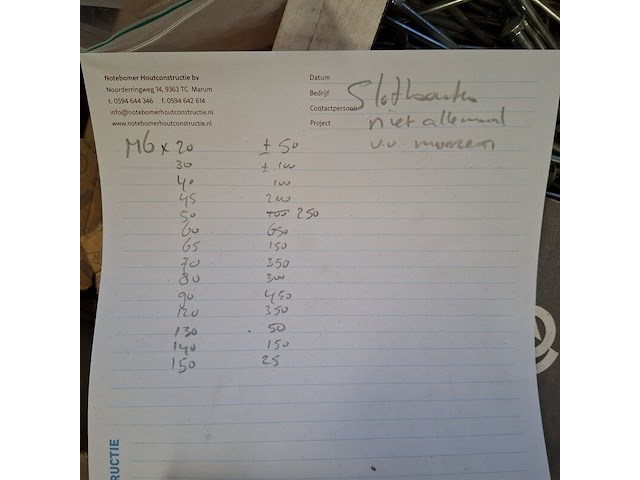 Notebomer Houtconstructie bv
Noorderringweg 14, 9363 TC Marum
t. 0594 644 346 f. 0594 642 614
info@notebomerhoutconstructie.nl
www.notebomerhoutconstructie.nl
Datum
Bedrijf
Contactpersoon
Project
Slotbouten
niet allemaal
v.v. moeren
M6 x 20 ± 50
30 ± 100
40 100
45 200
50 100 250
60 650
65 150
70 350
80 300
90 450
120 350
130 50
140 150
150 25
RUCTIE